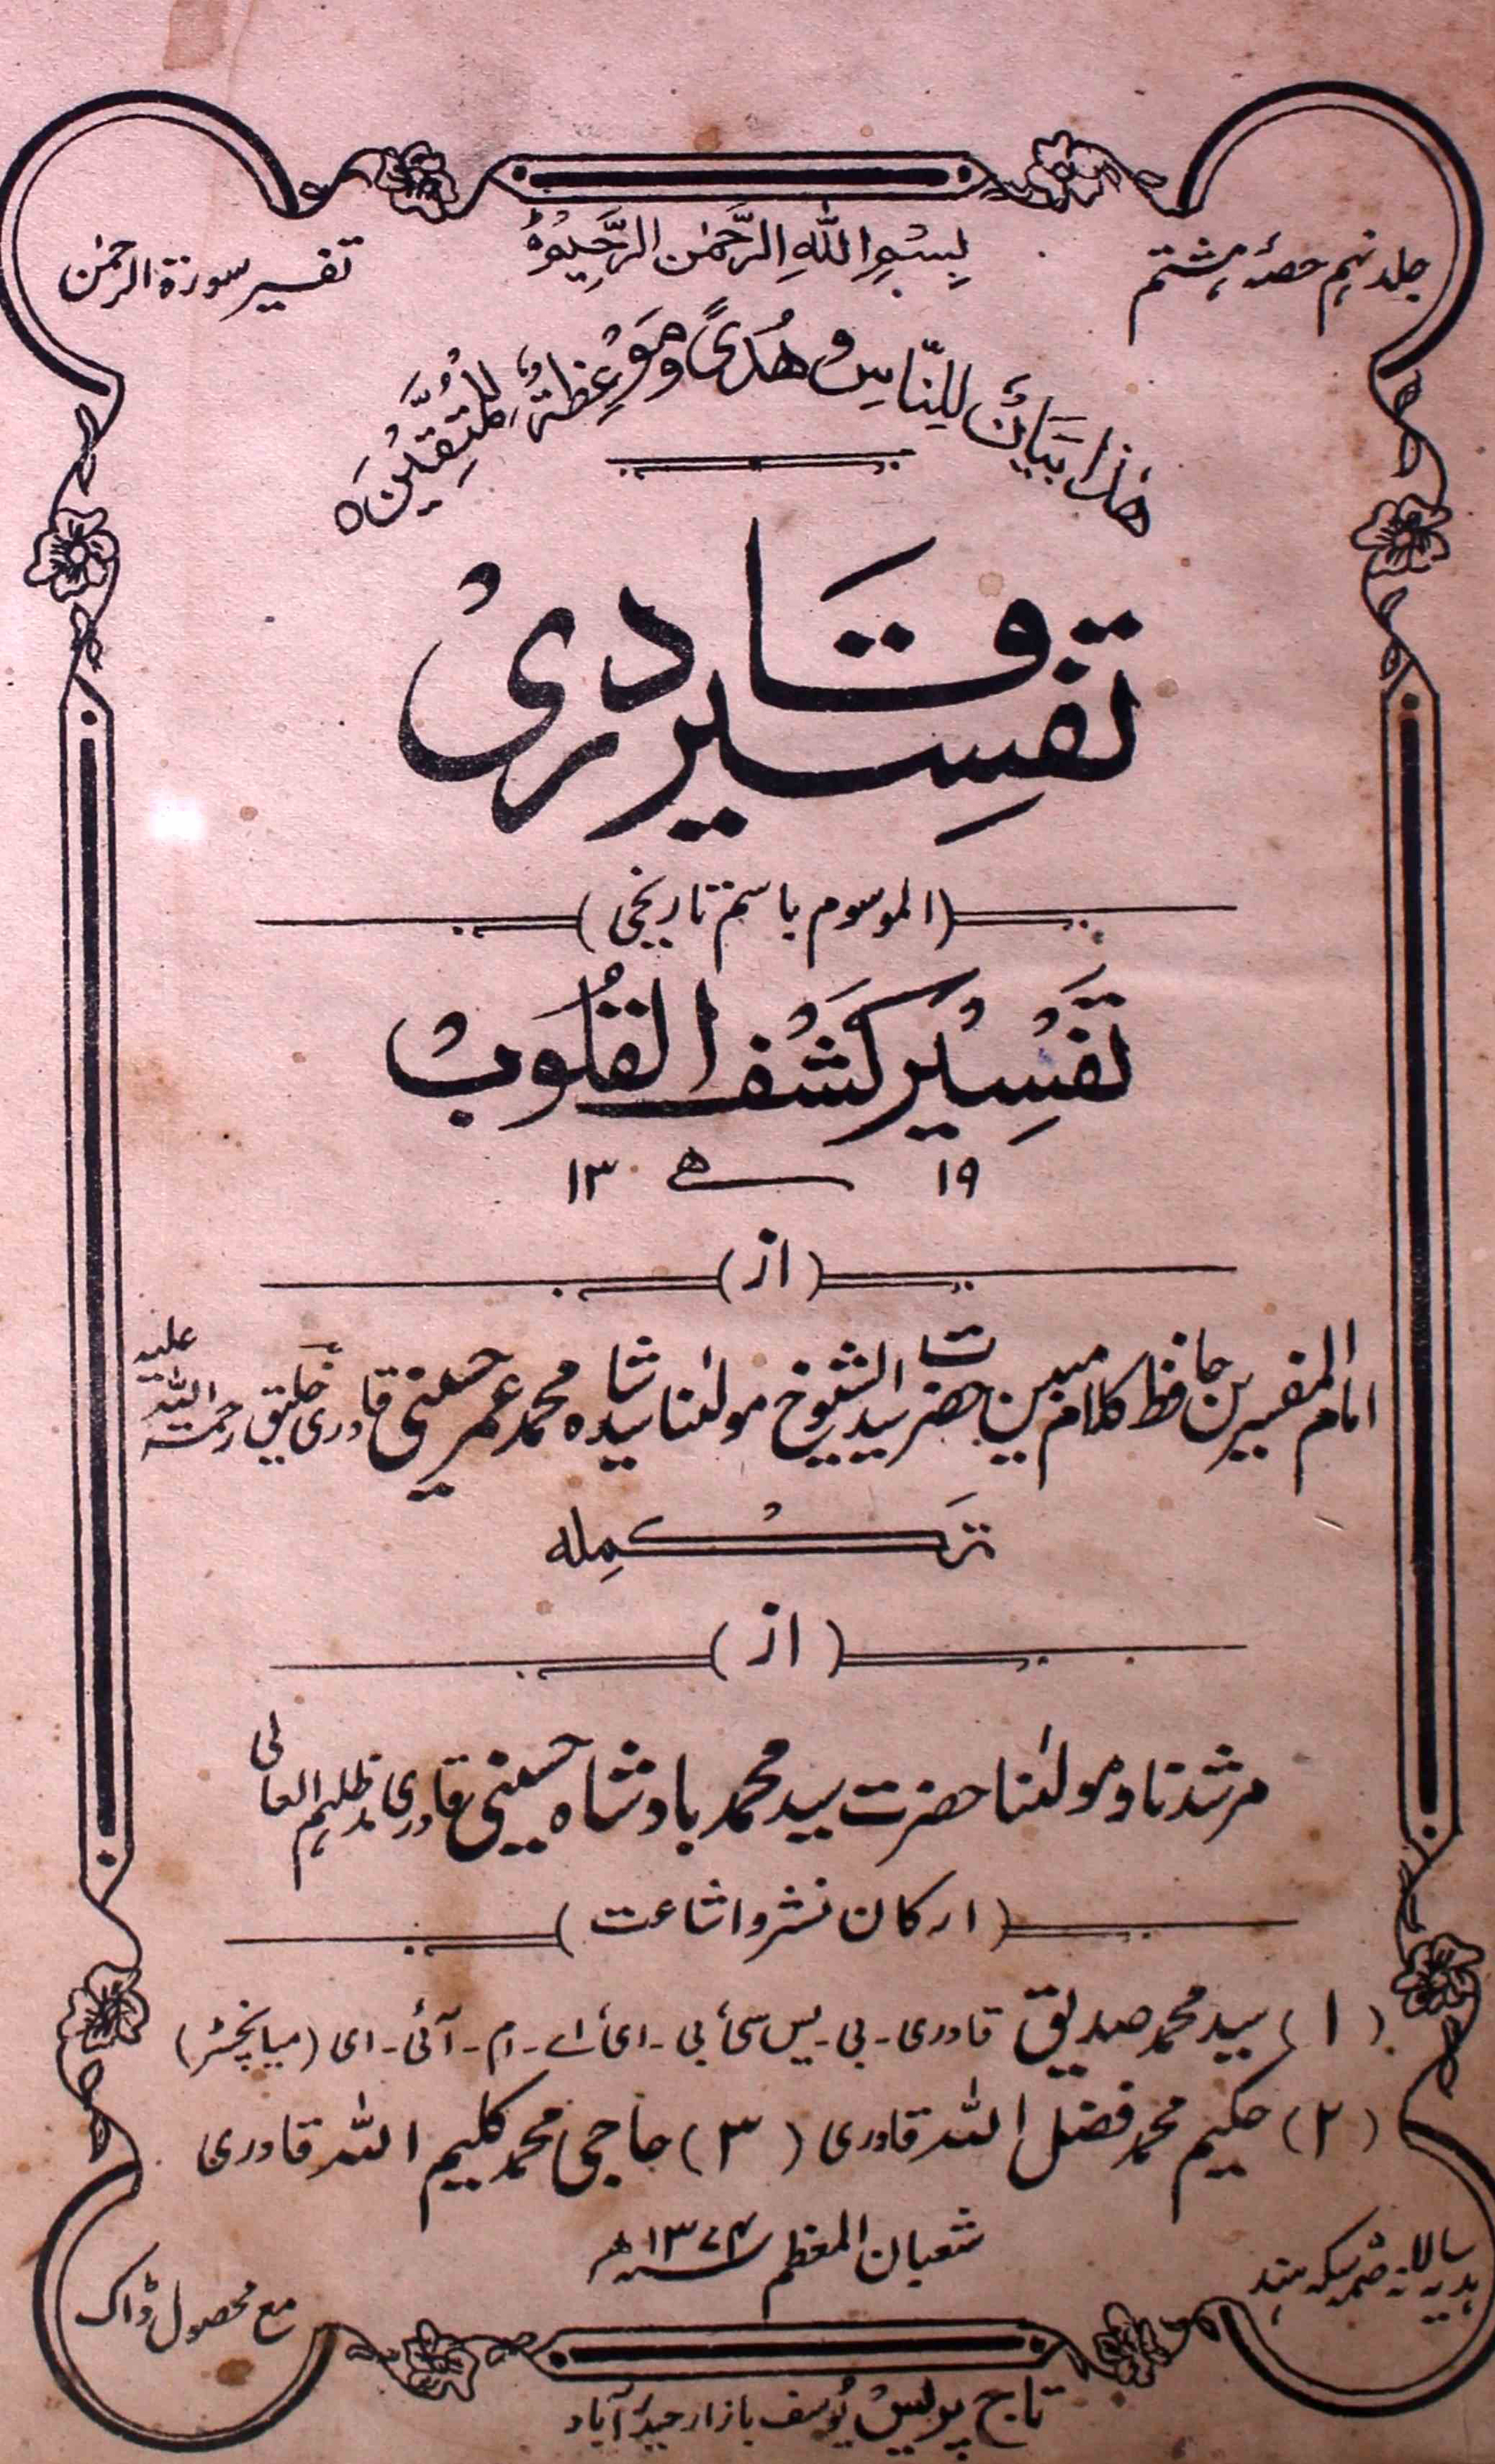 جلد نہم حصۂ ہشتم
بِسْمِ اللّٰهِ الرَّحْمٰنِ الرَّحِيْمِ ۝
تفسیر سورۃ الرحمٰن
هٰذَا بَيَانٌ لِّلنَّاسِ وَهُدًى وَّمَوْعِظَةٌ لِّلْمُتَّقِيْنَ ۝
تَفْسِیر قَادری
(الموسوم باسم تاریخی)
تَفْسِیْر کَشْفُ الْقُلُوبْ
۱۹ ھ ۱۳
(از)
امام المفسرین حافظ کلام مبین حضرت سید الشیوخ مولٰنا سید شاہ محمد عمر حسینی قادری خلیق رحمۃ اللہ علیہ
تَکْمِلہ
(از)
مرشدنا و مولٰنا حضرت سید محمد بادشاہ حسینی قادری مدظلہم العالی
(ارکان نشر و اشاعت)
(۱) سید محمد صدیق قادری۔ بی۔ یس سی، بی۔ ای، اے۔ ام۔ آئی۔ ای (میانچسٹر)
(۲) حکیم محمد فضل اللہ قادری (۳) حاجی محمد کلیم اللہ قادری
شعبان المعظم ۱۳۷۴ھ
ہدیہ سالانہ سکہ ہند
مع محصول ڈاک
تاج پریس یُوسف بازار حیدرآباد